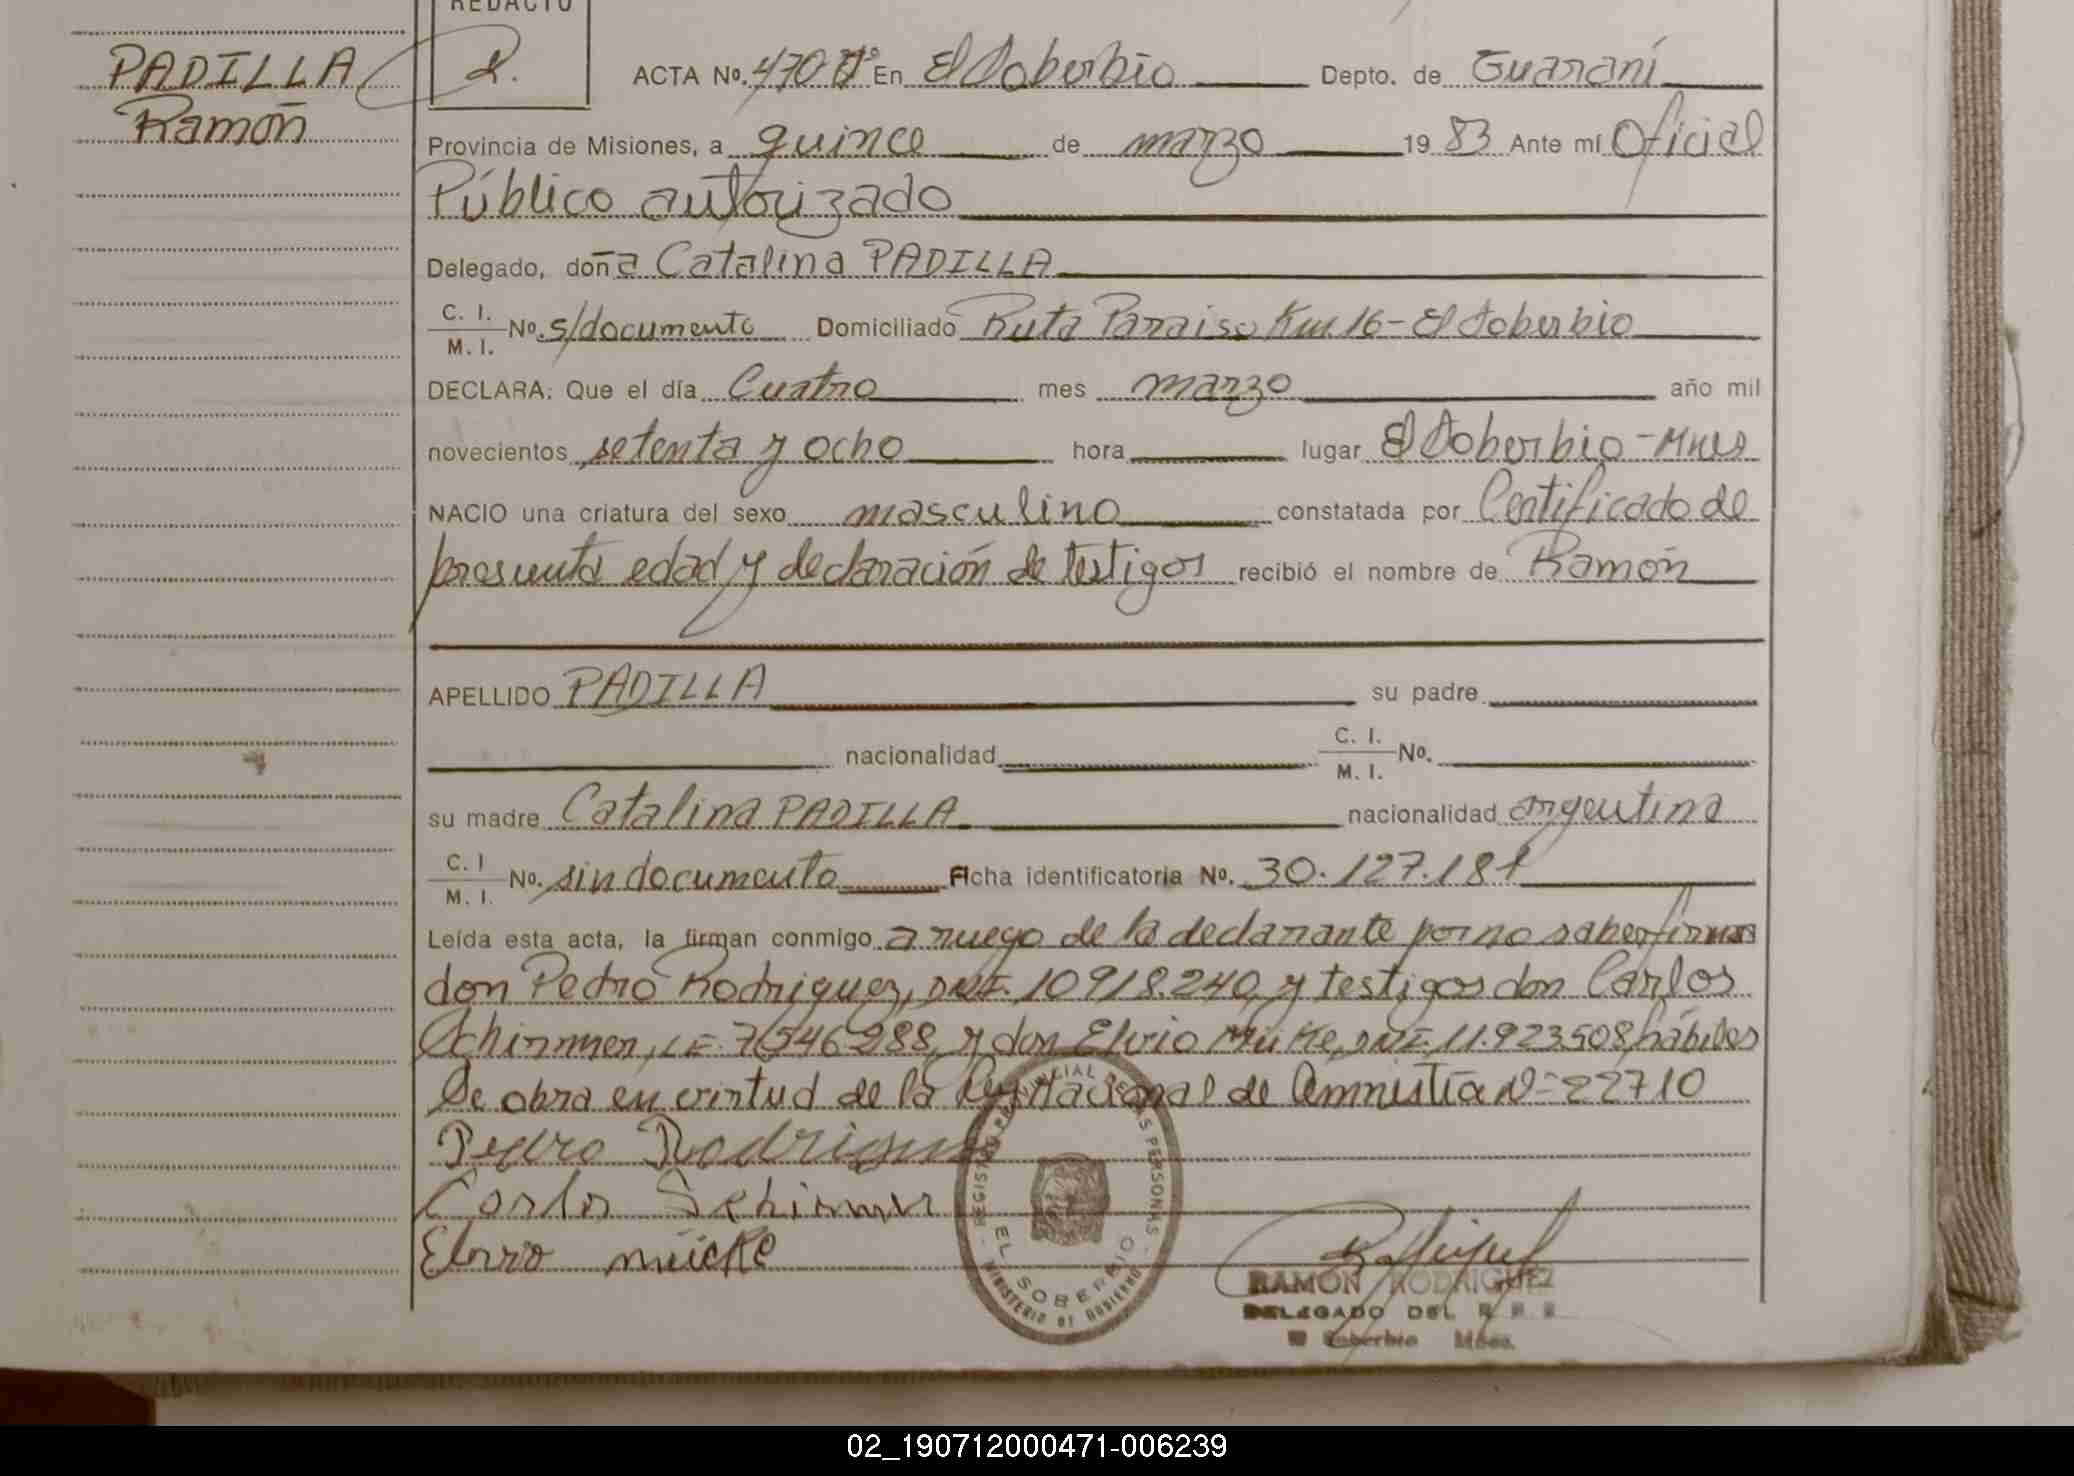 REDACTO
PADILLA
Ramón
R.
ACTA No. 470 Tº En El Soberbio Depto. de Guaraní
Provincia de Misiones, a quince de marzo 19 83 Ante mí Oficial
Público autorizado
Delegado, doña Catalina PADILLA
C. I. M. I. No. s/documento Domiciliado Ruta Paraiso Km. 16 - El Soberbio
DECLARA: Que el día Cuatro mes marzo año mil
novecientos setenta y ocho hora lugar El Soberbio - Mnes
NACIO una criatura del sexo masculino constatada por Certificado de
presunta edad y declaración de testigos recibió el nombre de Ramón
APELLIDO PADILLA su padre
nacionalidad C. I. M. I. No.
su madre Catalina PADILLA nacionalidad argentina
C. I M. I. No. sin documento Ficha identificatoria No. 30.127.181
Leída esta acta, la firman conmigo a ruego de la declarante por no saber firmar
don Pedro Rodriguez, DNI. 10918.240, y testigos don Carlos
Schirmer, LE. 7.546288, y don Elvio Mücke, DNI. 11.923508 hábiles
Se obra en virtud de la Ley Nacional de Amnistía Nº 22710
Pedro Rodriguez
Carlos Schirmer
Elvio mücke
REGISTRO PROVINCIAL DE LAS PERSONAS - MINISTERIO DE GOBIERNO -
EL SOBERBIO
RAMON RODRIGUEZ
DELEGADO DEL R. P. P.
El Soberbio Mnes.
02_190712000471-006239